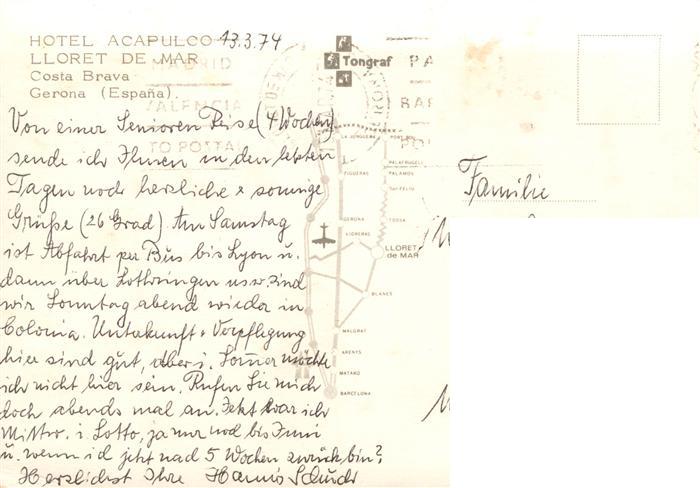 HOTEL ACAPULCO 13.3.74
LLORET DE MAR
Costa Brava
Gerona (España).
Tongraf
MADRID
VALENCIA
TO POSTA
Von einer Senioren Reise (4 Wochen)
sende ich Ihnen in den letzten
Tagen noch herzliche & sonnige
Grüße (26 Grad). Am Samstag
ist Abfahrt per Bus bis Lyon u.
dann über Lothringen usw. sind
wir Sonntag abend wieder in
Colonia. Unterkunft & Verpflegung
hier sind gut, aber i. Sommer möchte
ich nicht hier sein. Rufen Sie mich
doch abends mal an. Jetzt war ich
Mittw. i. Lotto, ja nur noch bis Juni
u. wenn ich jetzt nach 5 Wochen zurück bin?
Herzlichst Ihre Hannis
Familie
LA JUNQUERA
PORT BOU
PALAFRUGELL
FIGUERAS
PALAMOS
San FELIU
GERONA
TOSSA
VIDRERAS
LLORET
de MAR
BLANES
MALGRAT
ARENYS
MATARO
BARCELONA